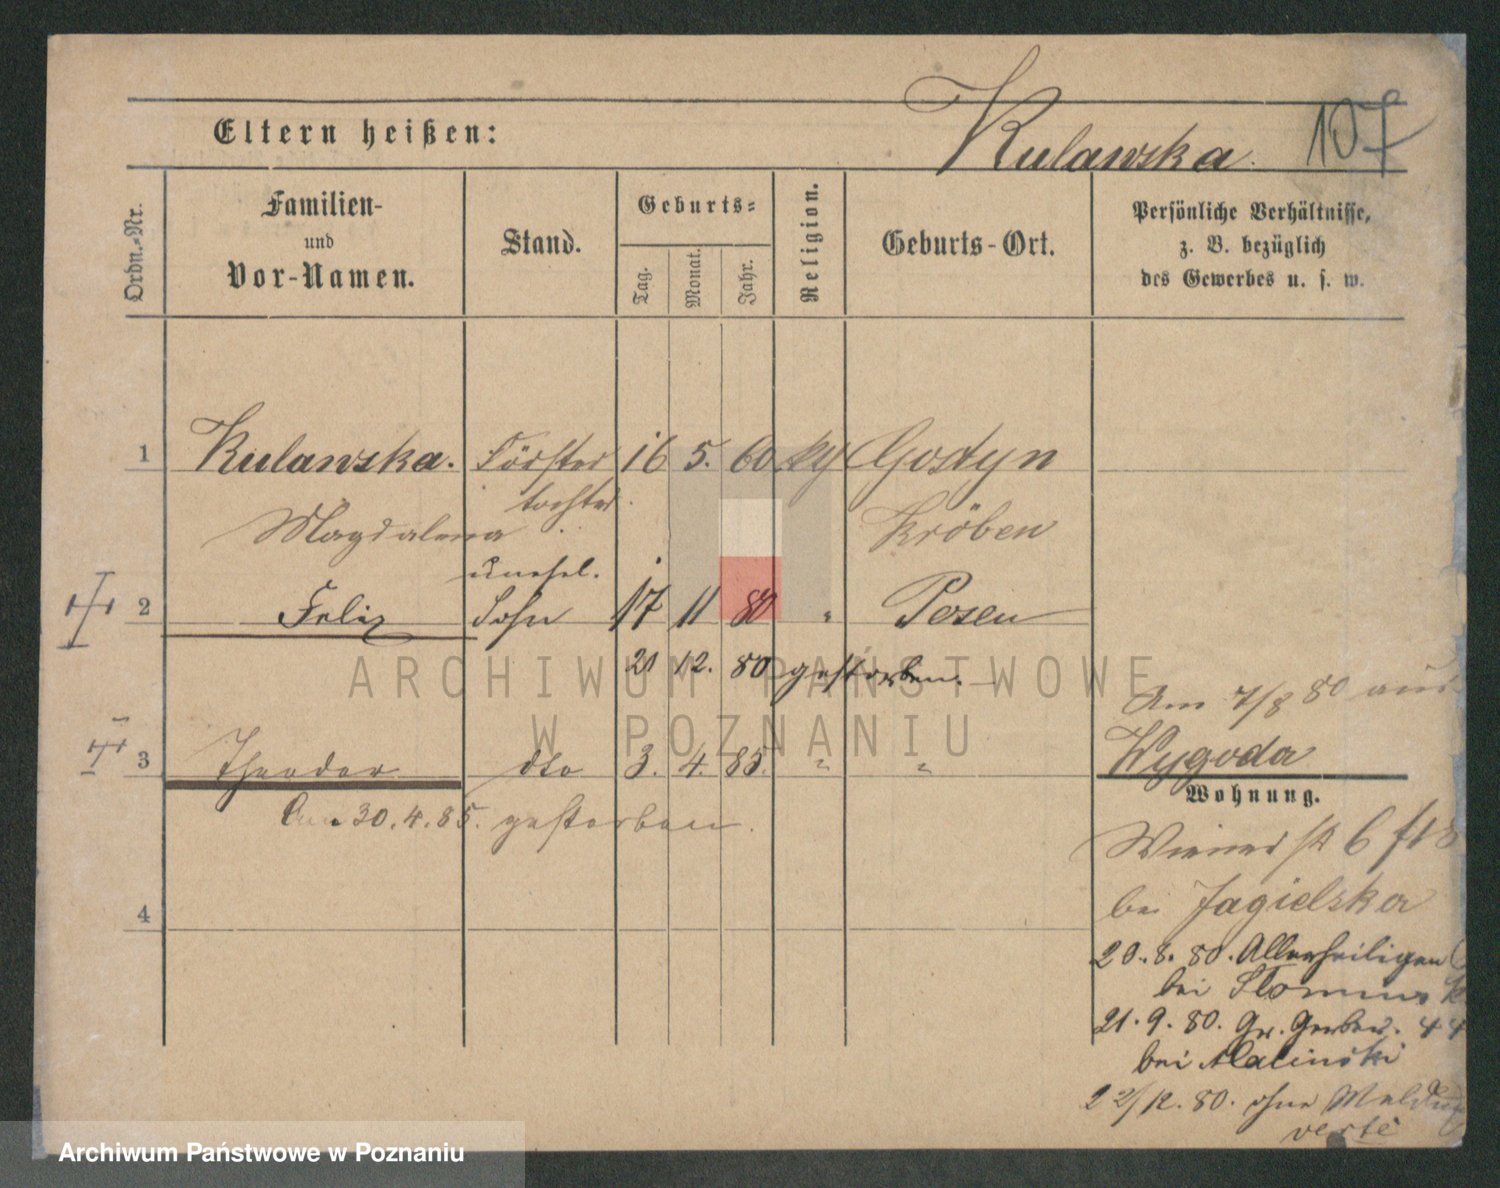 Kulawska. 107
Eltern heißen:
Ordn.-Nr.
Familien-
und
Vor-Namen.
Stand.
Geburts-
Tag. Monat. Jahr.
Religion.
Geburts-Ort.
Persönliche Verhältnisse,
z. B. bezüglich
des Gewerbes u. s. w.
1 Kulawska. Förster 16 5. 60 Gostyn
tochter
Magdalena Kröben
unehel.
2 Felix Sohn 17 11 80 " Posen
21 12. 80 gestorben.
ARCHIWUM PAŃSTWOWE
W POZNANIU
Am 7/8 80 aus
Wygoda
3 Theodor dto 3. 4. 85. " "
Am 30.4.85. gestorben.
Wohnung.
Wiener 6
bei Jagielska
4
20.8.80. Allerheiligen
bei
21.9.80. Gr. Gerber. 44
bei Malinski
22/12.80. ohne Meldung
verte
Archiwum Państwowe w Poznaniu